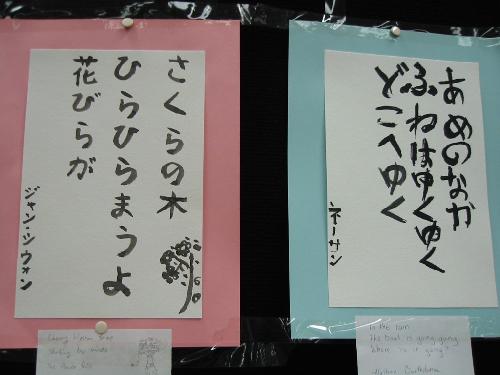 さくらの木
ひらひらまうよ
花びらが
ジャン・シウォン
あめのなか
ふねはゆくゆく
どこへゆく
ネーサン
Cherry Blossom Tree
In the rain
The boat is going, going
Where is it going?